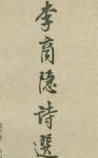 李商隐詩選